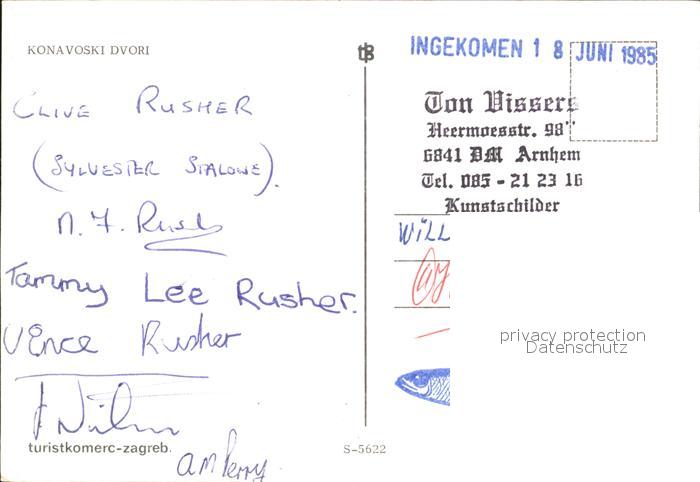 KONAVOSKI DVORI
CLIVE RUSHER
(SYLVESTER STALONE).
Tammy Lee Rusher.
Vence Rusher
turistkomerc-zagreb.
am Perry
S-5622
INGEKOMEN 18 JUNI 1985
Ton Vissers
Heermoesstr. 98"
6841 DM Arnhem
Tel. 085 - 21 23 16
Kunstschilder
WILL
privacy protection
Datenschutz